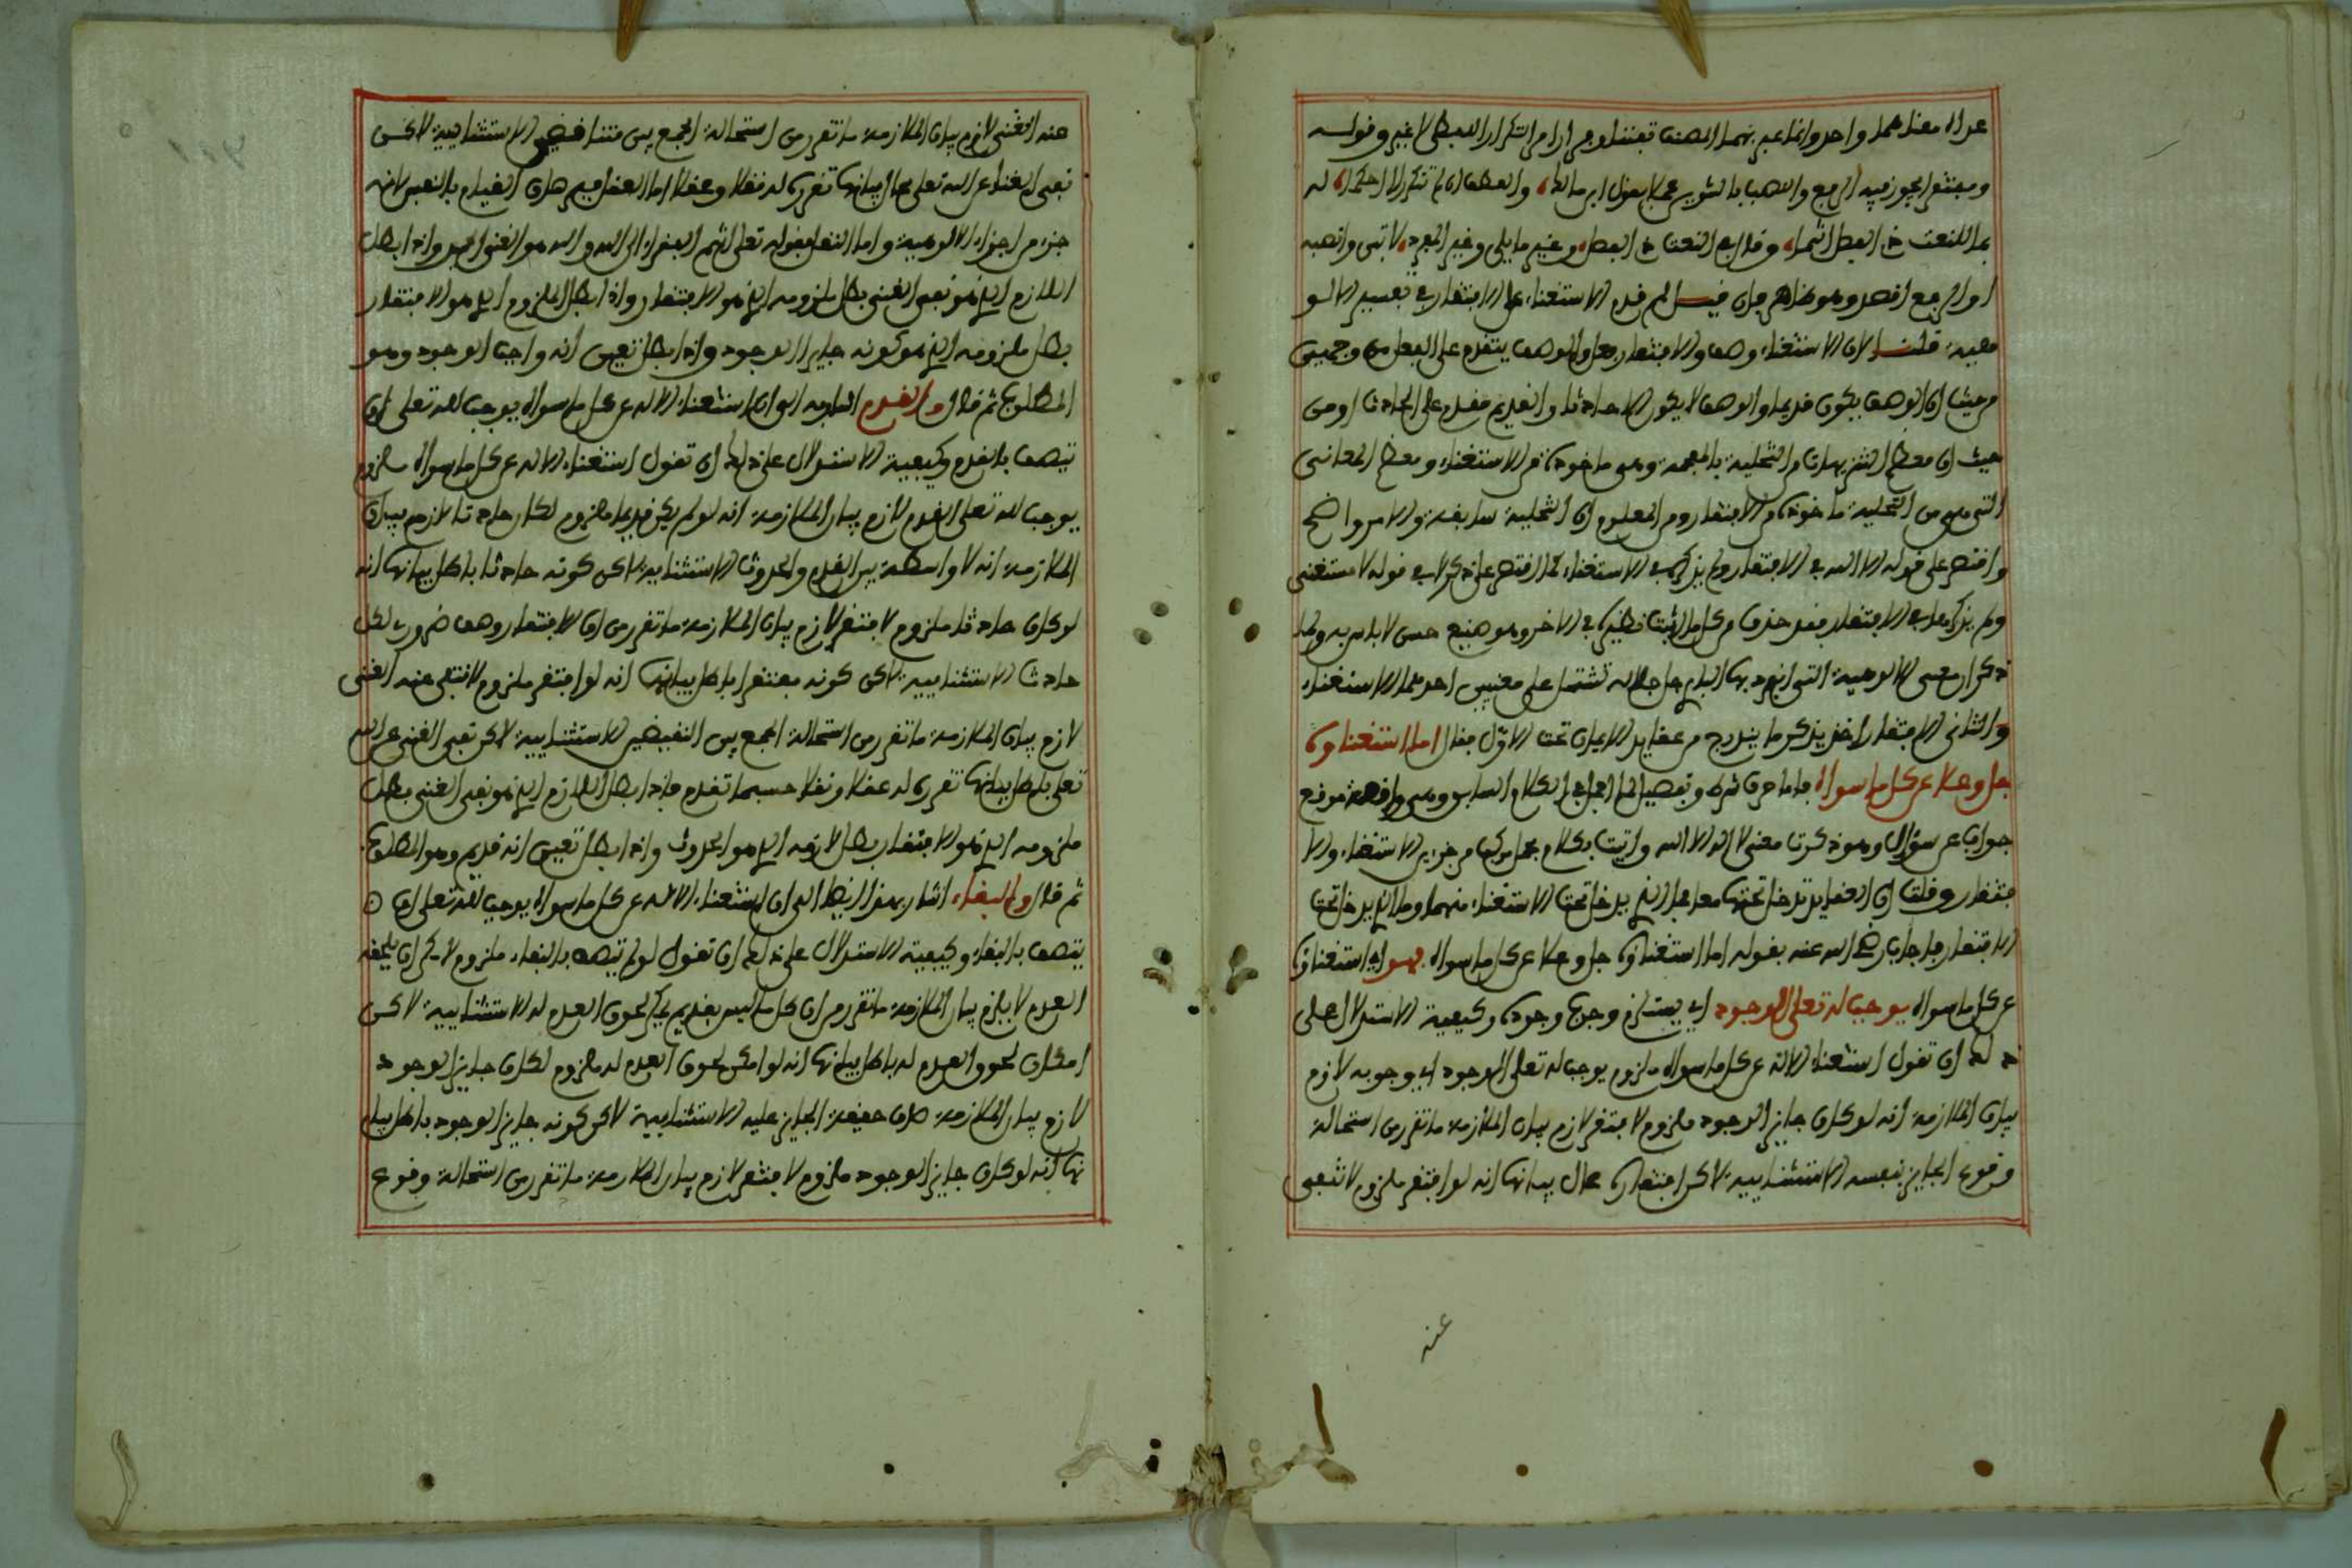 ومفتقرا يجوز فيه الرفع والنصب بالتنوين عملا بقول ابن مالك والعطف ان لم تتكرر لا احكما له
بما للنعت ذي الفصل انتما وقال في النعت ذي الفصل وغير ما يلي وغير المفرد لا تبن وانصبه
او الرفع اقصد وهو ظاهر فان قيل لم قدم الاستغناء على الافتقار في تفسير الالو
هية قلنا لان الاستغناء وصف والافتقار فعل والوصف يتقدم على الفعل من وجهين
من حيث ان الوصف يكون قديما والوصف لا يكون الا حادثا والقديم مقدم على الحادث او من
حيث ان معظم التنزيهات من التخلية بالمعجمة وهي ماخوذة من الاستغناء ومعظم المعاني
التي هي من التحلية ماخوذة من الافتقار ومن المعلوم ان التخلية سابقة والامر واضح
واقتصر على قوله الا الله في الافتقار ولم يذكره في الاستغناء كما اقتصر على ذكر لا في قوله لا مستغني
ولم يذكرها في الافتقار فقد حذف من كل ما اثبت نظيره في الاخر وهو صنيع حسن لا باس به ولما
ذكر ان معنى الالوهية التي انفرد بها الباري جل جلاله تشتمل على معنيين احدهما الاستغناء
والثاني الافتقار اخذ يذكر ما يندرج من عقايد الايمان تحت الاول فقال اما استغناؤه
جل وعلا عن كل ما سواه فاما حرف شرط وتفصيل لما اجمل في الكلام السابق وهي واقعة موقع
جواب عن سؤال وهو ذكرت معنى لا اله الا الله واتيت بكلام مجمل مركب من جزءين الاستغناء والا
فتقار وقلت ان العقايد تدخل تحتها معا فما الذي يدخل تحت الاستغناء منهما وما الذي يدخل تحت
الافتقار فاجاب رضي الله عنه بقوله اما استغناؤه جل وعلا عن كل ما سواه فهو اي استغناؤه
عن كل ما سواه يوجب له تعلى الوجود اي يستلزم وجوب وجوده وكيفية الاستدلال على
ذلك ان تقول استغناء الاله عن كل ما سواه ملزوم يوجب له تعلى الوجود اي وجوبه لازم
بيان الملازمة انه لو كان جايز الوجود ملزوم لافتقر لازم بيان الملازمة ما تقرر من استحالة
وقوع الجايز بنفسه الاستثنايية لاكن افتقاره محال بيانها انه لو افتقر ملزوم لانتفى
عنه
عنه الغنى لازم بيان الملازمة ما تقرر من استحالة الجمع بين متناقضين الاستثنايية لاكن
نفي الغناء عن الله تعلى محال بيانها تقرره له نقلا وعقلا اما العقل فبرهان القيام بالنفس لانه
جزء من اجزاء الالوهية واما النقل فقوله تعلى انتم الفقراء الى الله والله هو الغني الحميد واذا بطل
اللازم الذي هو نفي الغنى بطل ملزومه الذي هو الافتقار واذا بطل الملزوم الذي هو الافتقار
بطل ملزومه الذي هو كونه جايز الوجود واذا بطل تعين انه واجب الوجود وهو
المطلوب ثم قال والقدم اشار به الى ان استغناء الاله عن كل ما سواه يوجب له تعلى ان
يتصف بالقدم وكيفية الاستدلال على ذلك ان تقول استغناء الاله عن كل ما سواه ملزوم
يوجب له تعلى القدم لازم بيان الملازمة انه لو لم يكن قديما ملزوم لكان حادثا لازم بيان
الملازمة انه لا واسطة بين القدم والحدوث الاستثنايية لاكن كونه حادثا باطل بيانها انه
لو كان حادثا ملزوم لافتقر لازم بيان الملازمة ما تقرر من ان الافتقار وصف ضروري لكل
حادث الاستثنايية لاكن كونه مفتقرا باطل بيانها انه لو افتقر ملزوم لانتفى عنه الغنى
لازم بيان الملازمة ما تقرر من استحالة الجمع بين النقيضين الاستثنايية لاكن نفي الغنى عن الله
تعلى باطل بيانها تقرره له عقلا ونقلا حسبما تقدم فاذا بطل اللازم الذي هو نفي الغنى بطل
ملزومه الذي هو الافتقار بطل لازمه الذي هو الحدوث واذا بطل تعين انه قديم وهو المطلوب
ثم قال والبقاء اشار بهذا اللفظ الى ان استغناء الاله عن كل ما سواه يوجب له تعلى ان
يتصف بالبقاء وكيفية الاستدلال على ذلك ان تقول لو لم يتصف بالبقاء ملزوم لامكن ان يلحقه
العدم لا يلزم بيان الملازمة ما تقرر من ان كل ما ليس بقديم يمكن لحوق العدم له الاستثنايية لاكن
امكان لحوق العدم له باطل بيانها انه لو امكن لحوق العدم له ملزوم لكان جايز الوجود
لازم بيان الملازمة صدق حقيقة الجايز عليه الاستثنايية لاكن كونه جايز الوجود باطل بيا
نها انه لو كان جايز الوجود ملزوم لافتقر لازم بيان الملازمة ما تقرر من استحالة وقوع